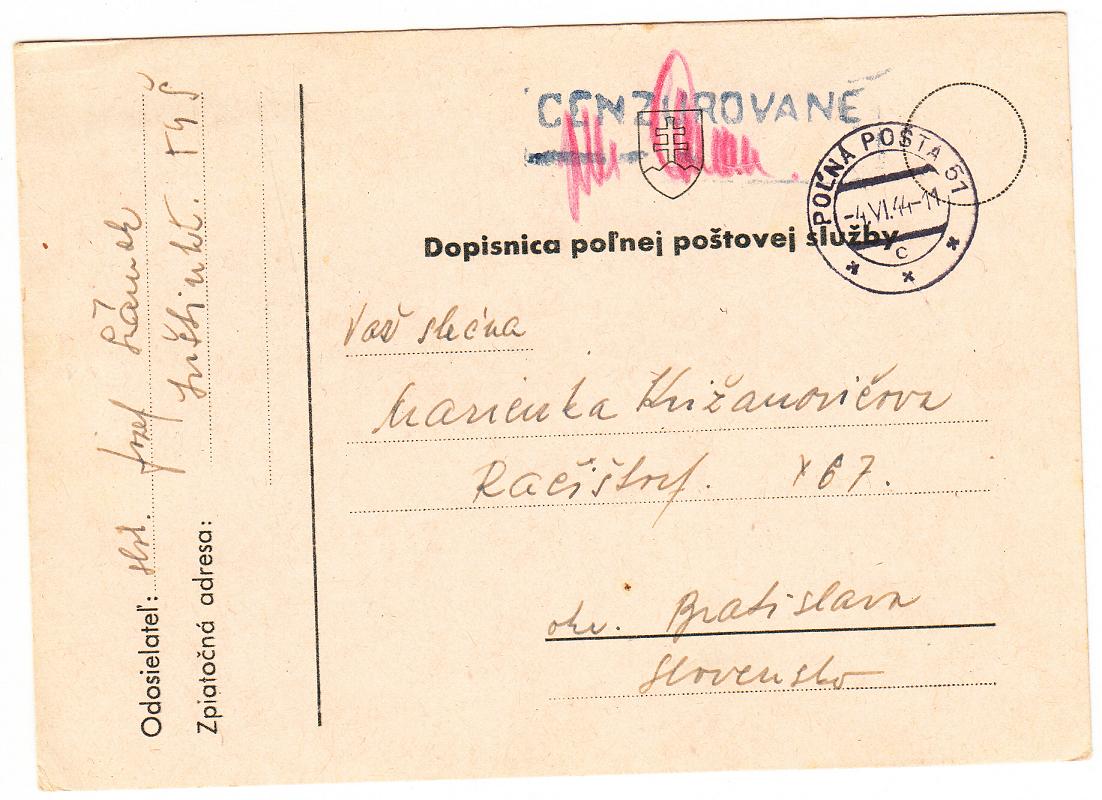 CENZUROVANÉ
POĽNÁ POŠTA 51
-4.VI.44-11
C
Dopisnica poľnej poštovej služby
Važ slečna
Marienka Križanovičova
Račištorf. 167.
okr. Bratislava
Slovensko
Odosielateľ: Jozef
Zpiatočná adresa: